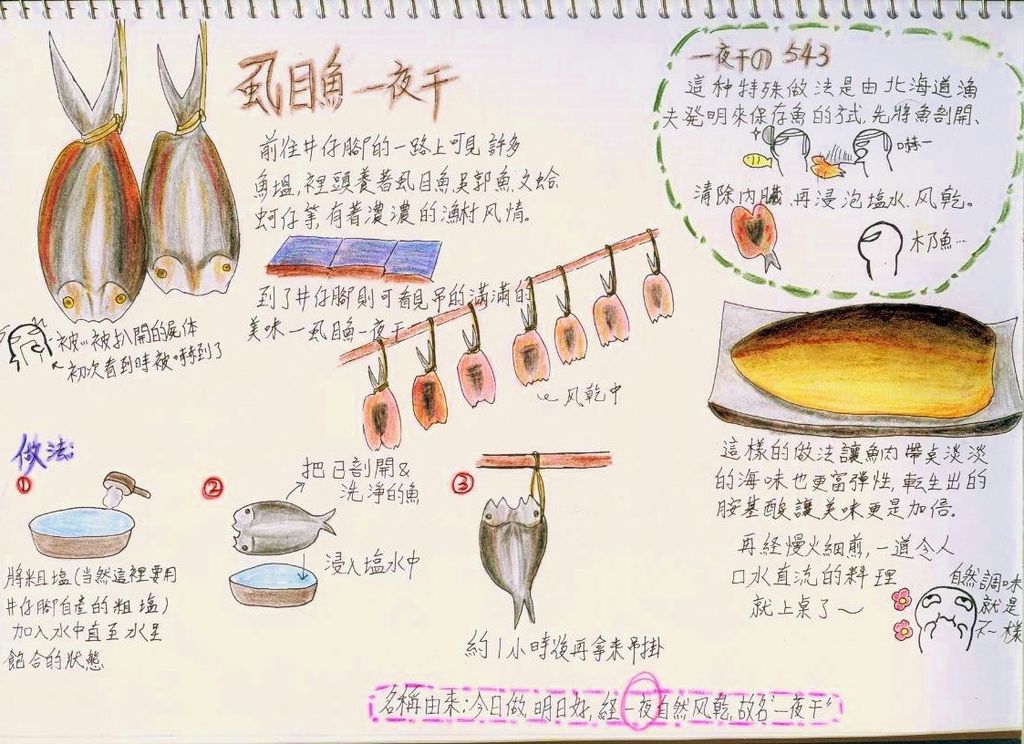 虱目魚一夜干
前往井仔腳的一路上可見許多
魚塭,裡頭養著虱目魚吳郭魚文蛤
蚵仔等,有著濃濃的漁村风情。
到了井仔腳則可看見吊的滿滿的
美味一虱目魚一夜干
被..被扒開的屍体
初次看到時被嚇到了
风乾中
一夜干の543
這种特殊做法是由北海道漁
夫発明來保存魚的方式,先將魚剖開、
嚇一
清除內臟,再浸泡塩水.风乾。
木乃魚…
做法:
①
將粗塩(当然這裡要用
井仔腳自產的粗塩)
加入水中直至水呈
飽合的狀態
②
把已剖開&
洗淨的魚
浸入塩水中
③
約1小時後再拿來吊掛
這樣的做法讓魚肉帶桌淡淡
的海味也更富彈性,転生出的
胺基酸讓美味更是加倍。
再経慢火細煎,一道令人
口水直流的料理
就上桌了～
自然調味
就是
不一樣
名稱由來:今日做,明日好,経一夜自然风乾,故名"一夜干"